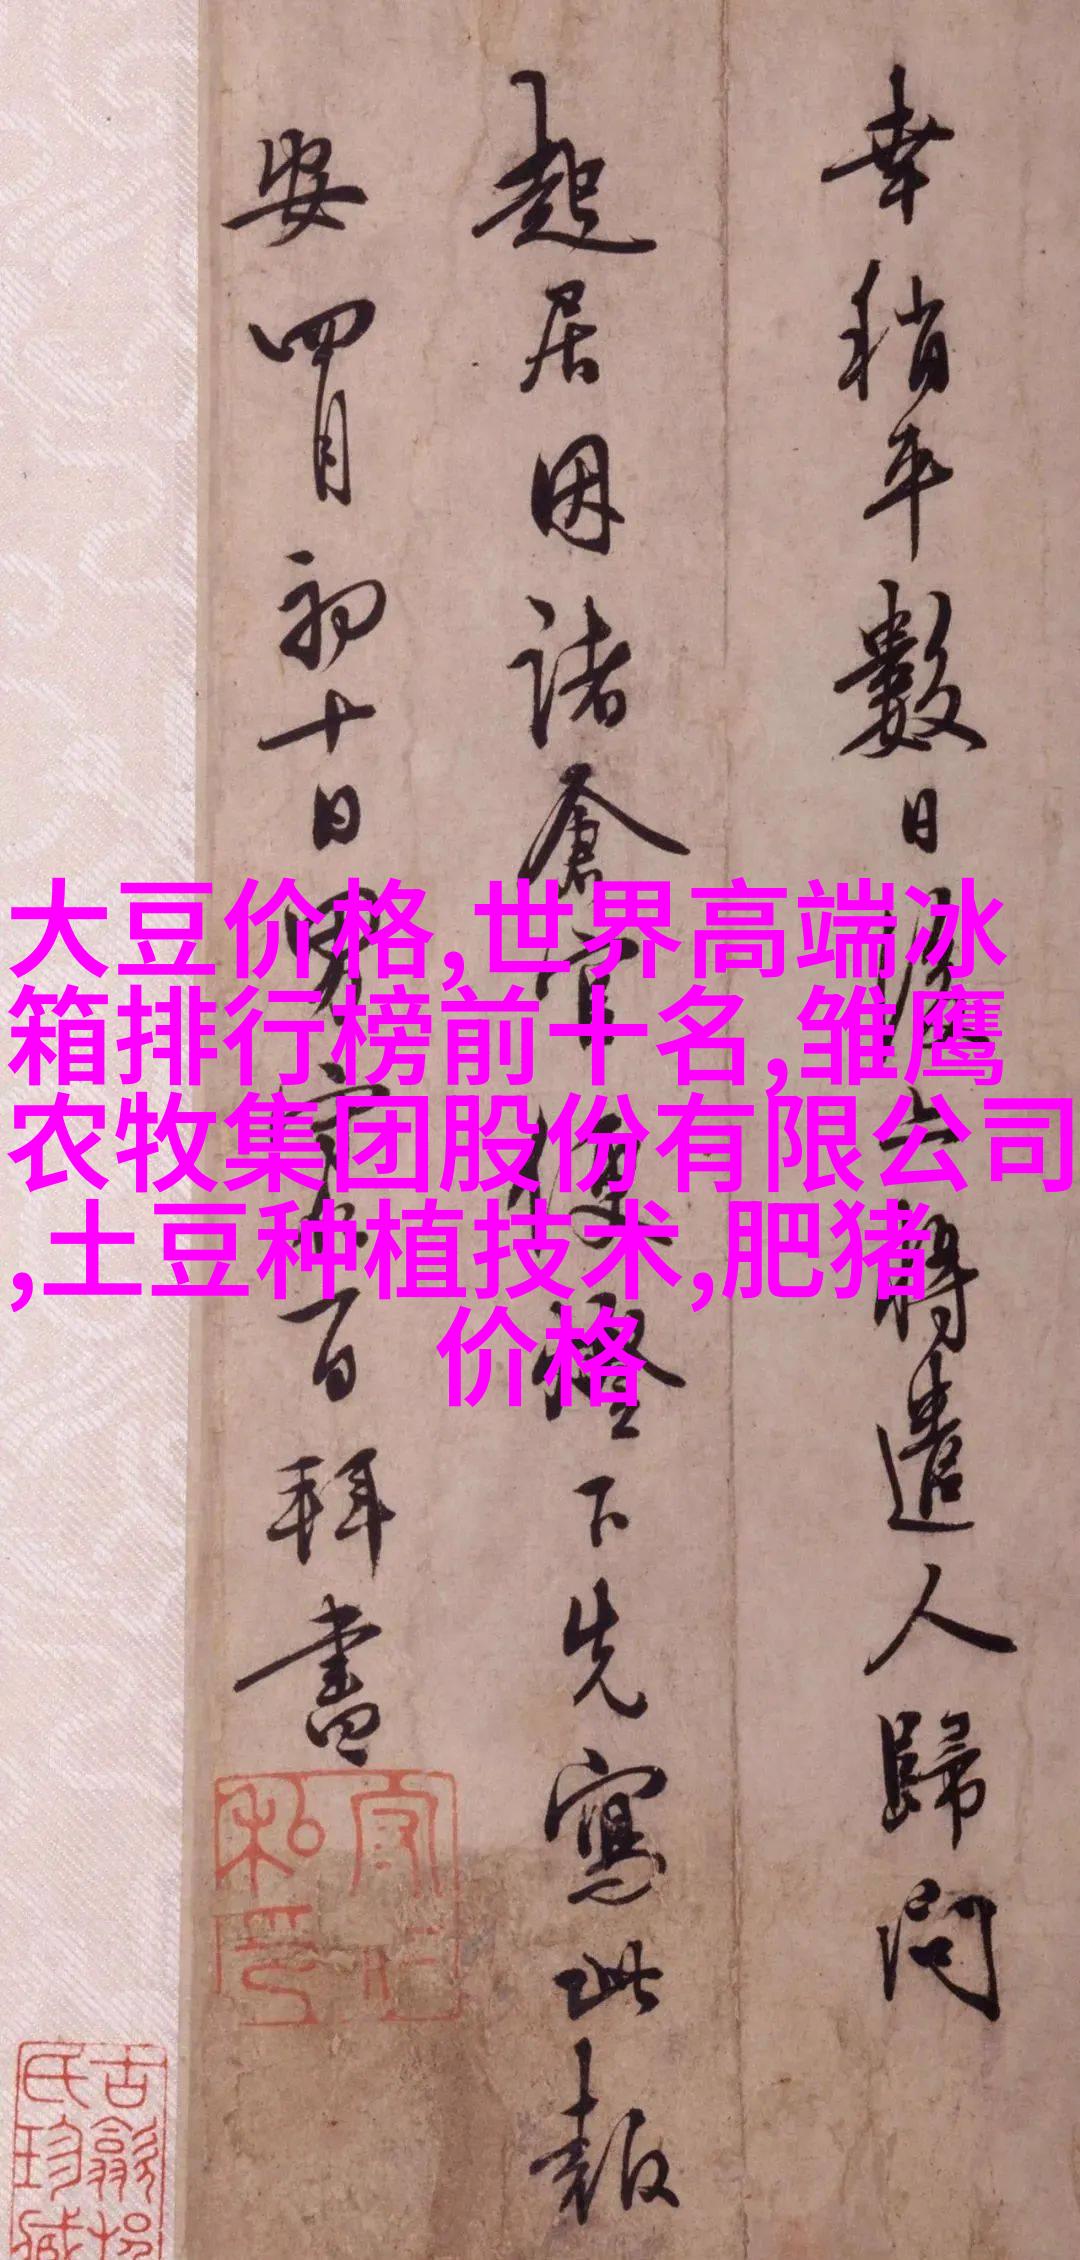 幸稍平數日後
遣人歸問
起居因諸倉官
下先寫此報
安四月初十日男
百拜書
大豆价格,世界高端冰
箱排行榜前十名,雏鹰
农牧集团股份有限公司
,土豆种植技术,肥猪
价格